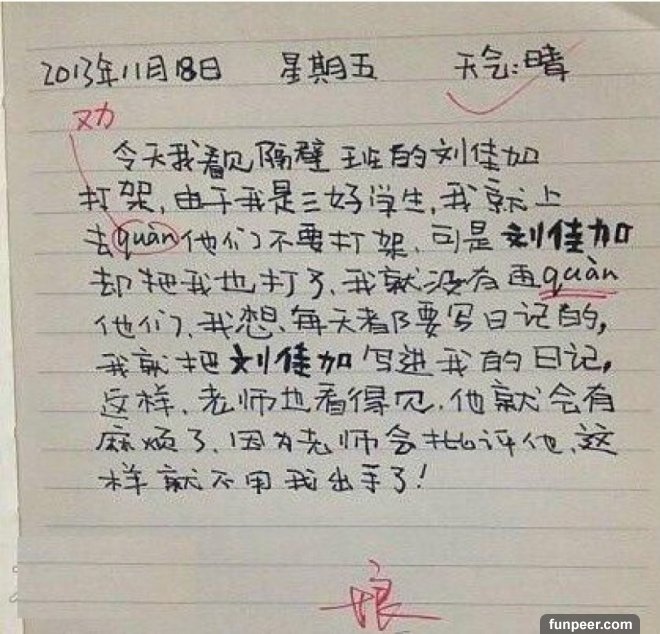 2013年11月18日 星期五 天气:晴
劝
今天我看见隔壁班的刘佳加
打架,由于我是三好学生,我就上
去quàn他们不要打架,可是刘佳加
却把我也打了,我就没有再quàn
他们,我想,每天都要写日记的,
我就把刘佳加写进我的日记,
这样,老师也看得见,他就会有
麻烦了,因为老师会批评他,这
样就不用我出手了!
funpeer.com